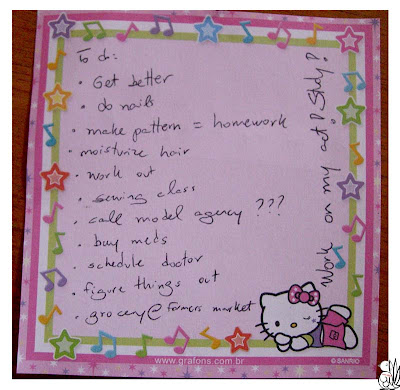 To do:
• Get better
• do nails
• make pattern = homework
• moisturize hair
• work out
• sewing class
• call model agency ???
• buy meds
• schedule doctor
• figure things out
• grocery @ farmers market
Work on my act! Study!
www.grafons.com.br
© SANRIO